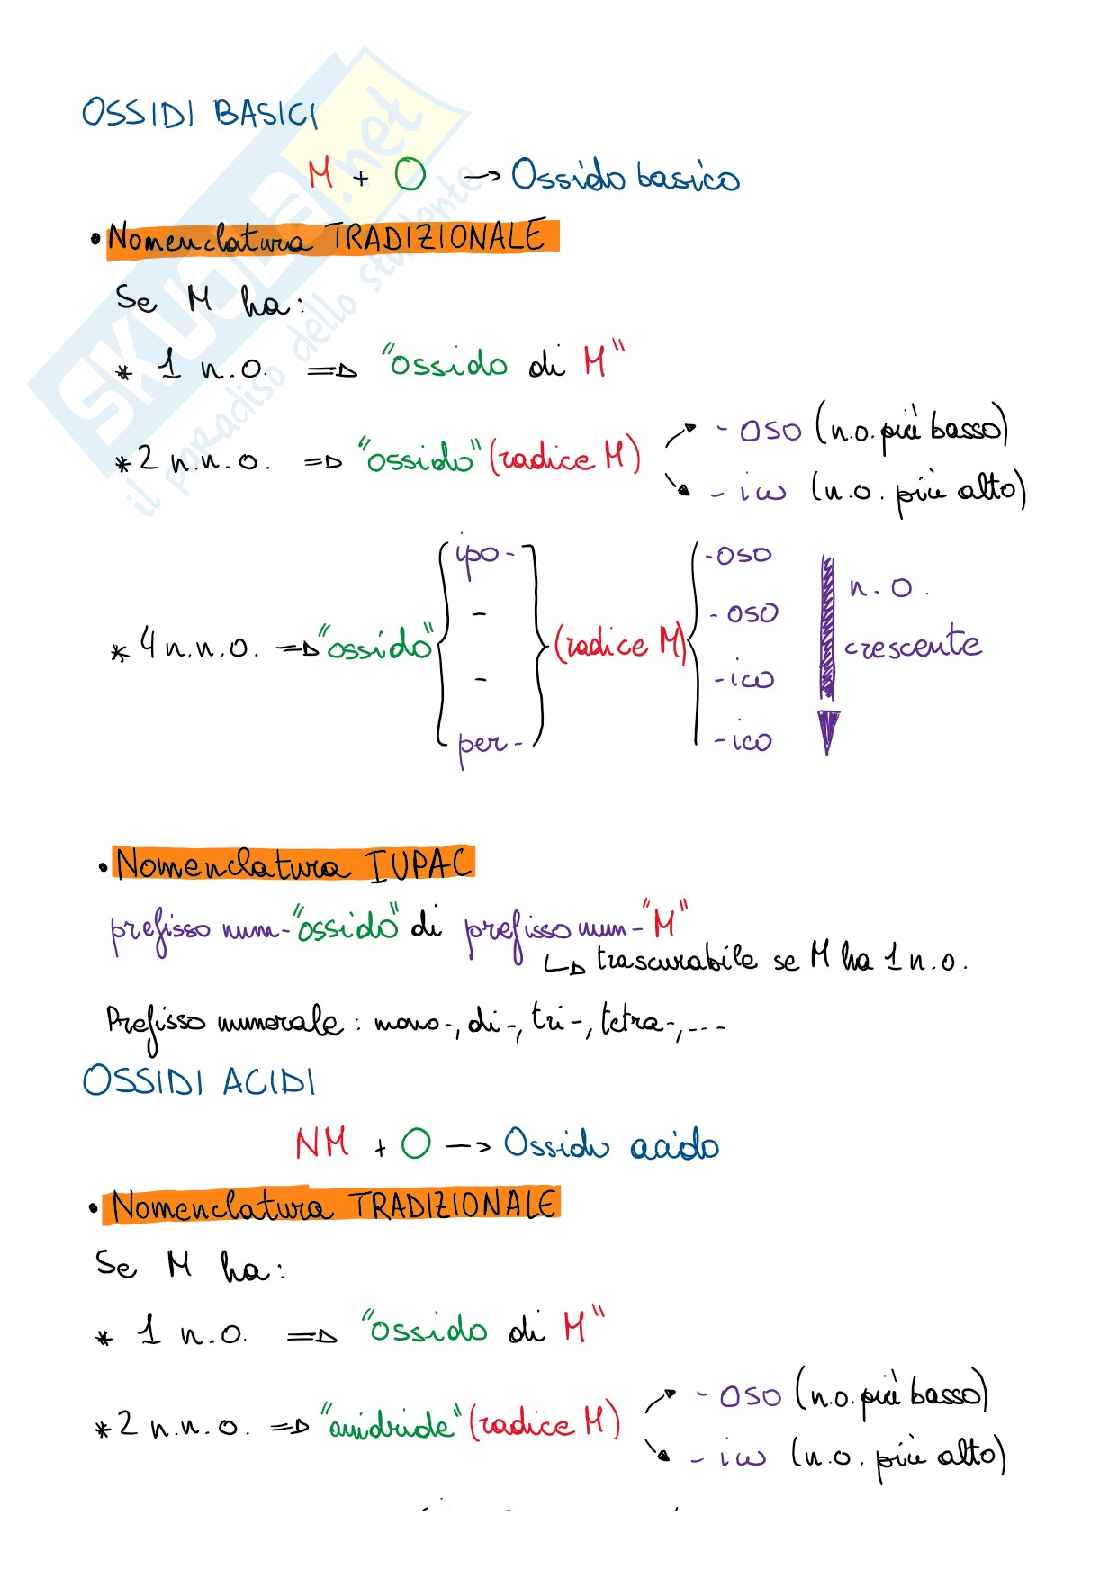 SKUOLA.net
il paradiso dello studente
OSSIDI BASICI
M + O → Ossido basico
• Nomenclatura TRADIZIONALE
Se M ha:
* 1 n.o. ⇒ "ossido di M"
* 2 n.n.o. ⇒ "ossido" (radice M)
- oso (n.o. più basso)
- ico (n.o. più alto)
* 4 n.n.o. ⇒ "ossido"
ipo-
-
-
per-
(radice M)
-oso
-oso
-ico
-ico
n.o.
crescente
• Nomenclatura IUPAC
prefisso num-"ossido" di prefisso num-"M"
↳ trascurabile se M ha 1 n.o.
Prefisso numerale: mono-, di-, tri-, tetra-, ...
OSSIDI ACIDI
NM + O → Ossido acido
• Nomenclatura TRADIZIONALE
Se M ha:
* 1 n.o. ⇒ "ossido di M"
* 2 n.n.o. ⇒ "anidride" (radice M)
- oso (n.o. più basso)
- ico (n.o. più alto)